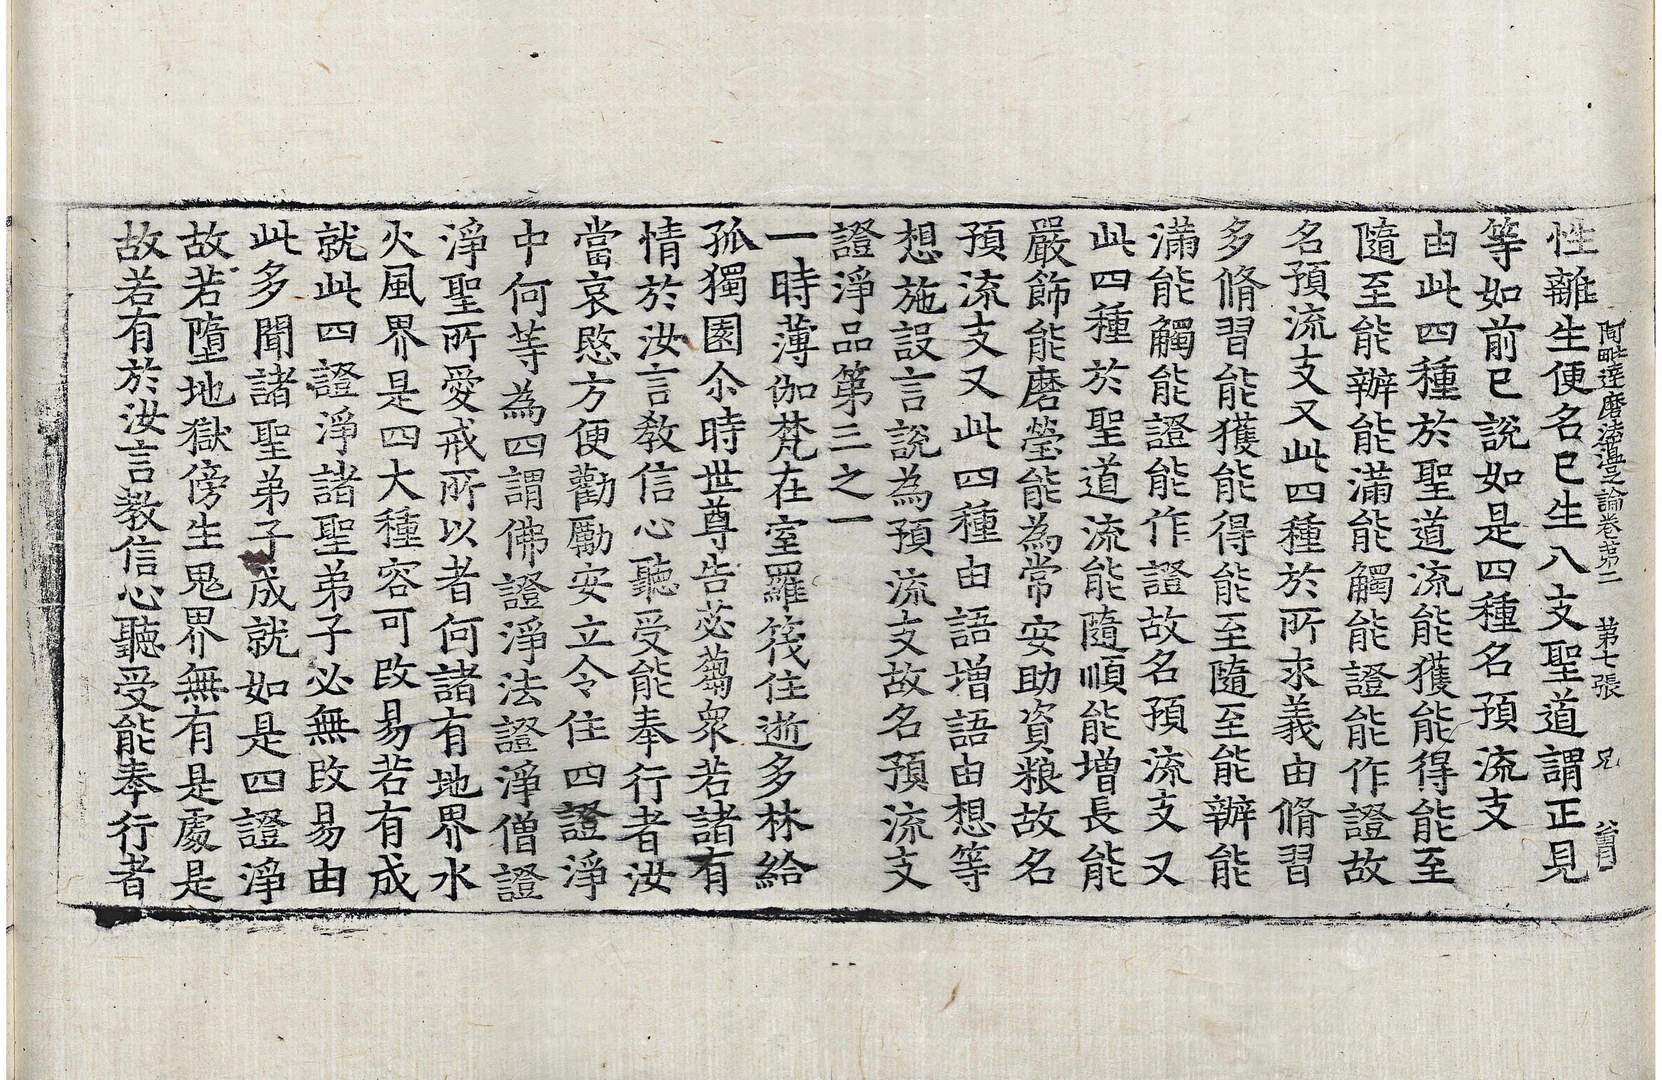 阿毗達磨法蕴足論卷第二　第七張　兄
性離生便名已生八支聖道謂正見
等如前已說如是四種名預流支
由此四種於聖道流能獲能得能至
隨至能辦能滿能觸能證能作證故
名預流支又此四種於所求義由脩習
多脩習能獲能得能至隨至能辦能
滿能觸能證能作證故名預流支又
此四種於聖道流能隨順能增長能
嚴飾能磨瑩能為常安助資粮故名
預流支又此四種由語增語由想等
想施設言說為預流支故名預流支
證淨品第三之一
一時薄伽梵在室羅筏住逝多林給
孤獨園尒時世尊告苾蒭衆若諸有
情於汝言教信心聽受能奉行者汝
當哀愍方便勸勵安立令住四證淨
中何等為四謂佛證淨法證淨僧證
淨聖所愛戒所以者何諸有地界水
火風界是四大種容可改易若有成
就此四證淨諸聖弟子必無改易由
此多聞諸聖弟子成就如是四證淨
故若墮地獄傍生鬼界無有是處是
故若有於汝言教信心聽受能奉行者